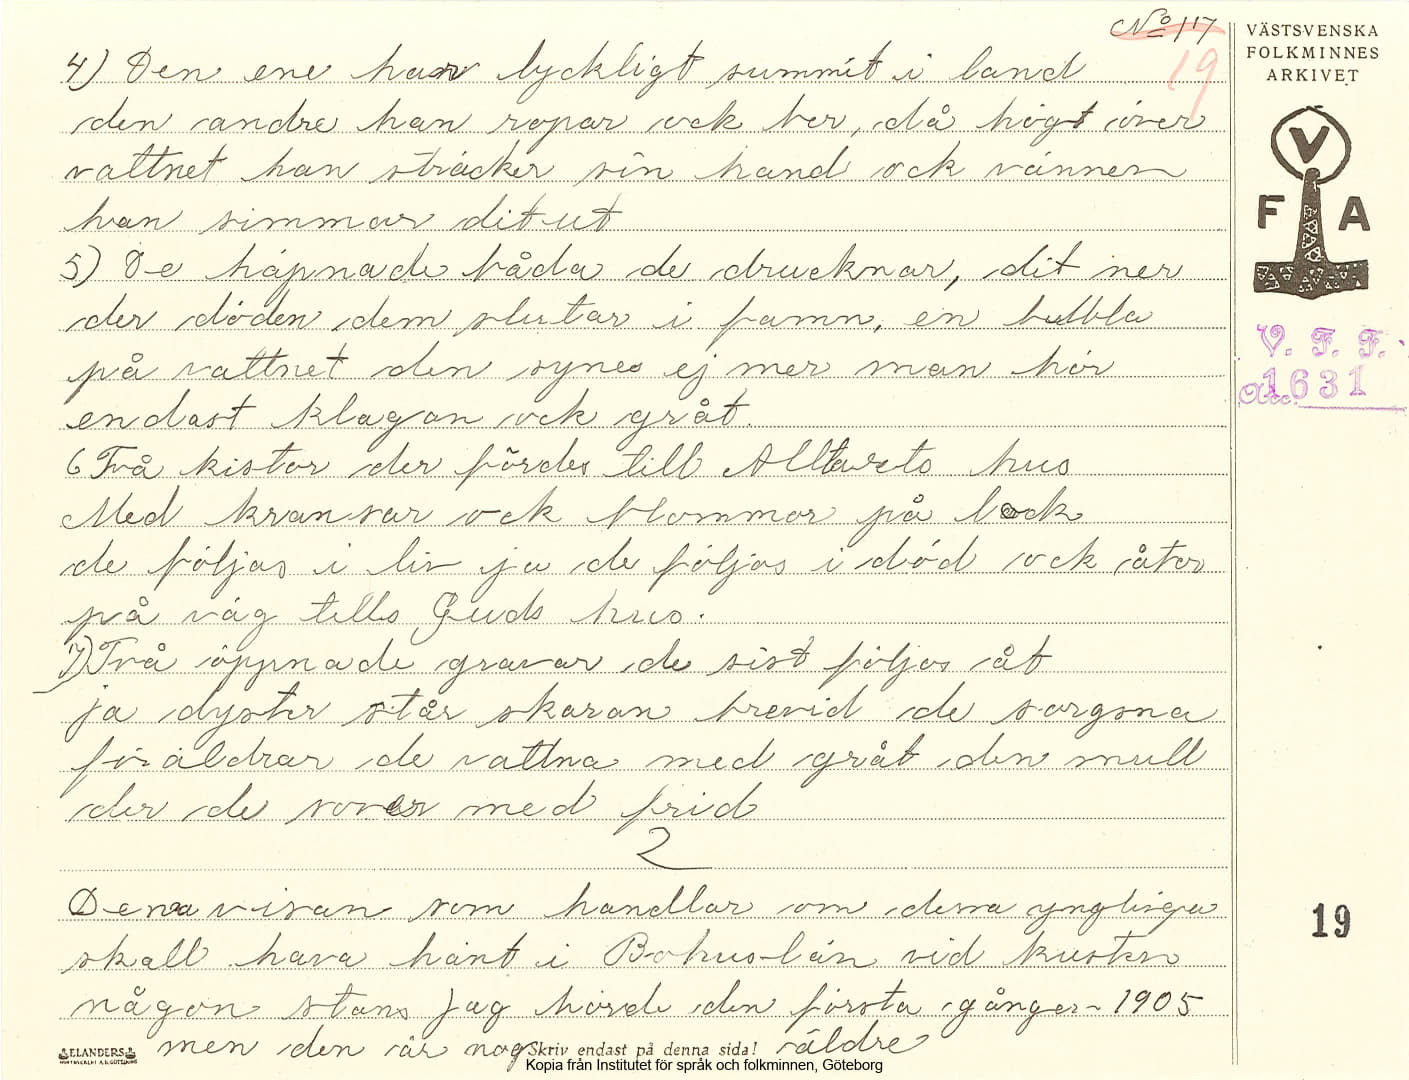 No 117
19
VÄSTSVENSKA
FOLKMINNES
ARKIVET
V
F A
V. F. F.
Acc. 1631
4) Den ene han lyckligt summit i land
den andre han ropar ock ber, då högt över
vattnet han sträcker sin hand ock vännen
han simmar dit ut
5) De häpnade båda de drucknar, dit ner
der döden dem slutar i famn, en bubbla
på vattnet den synes ej mer man hör
endast klagan ock gråt.
6 Två kistor der fördes till Alltarets hus
Med kransar ock blommor på lock
de följas i liv ja de följas i död ock åter
på väg tills Guds hus.
7) Två öppnade gravar de sist följas åt
ja dyster står skaran brevid de sorgsna
föräldrar de vattna med gråt den mull
der de sover med frid
2
Dena visan som handlar om dessa ynglingar
skall hava hänt i Bohuslän vid kusten
någon stans Jag hörde den första gången 1905
men den är nog äldre
19
ELANDERS
Skriv endast på denna sida!
Kopia från Institutet för språk och folkminnen, Göteborg